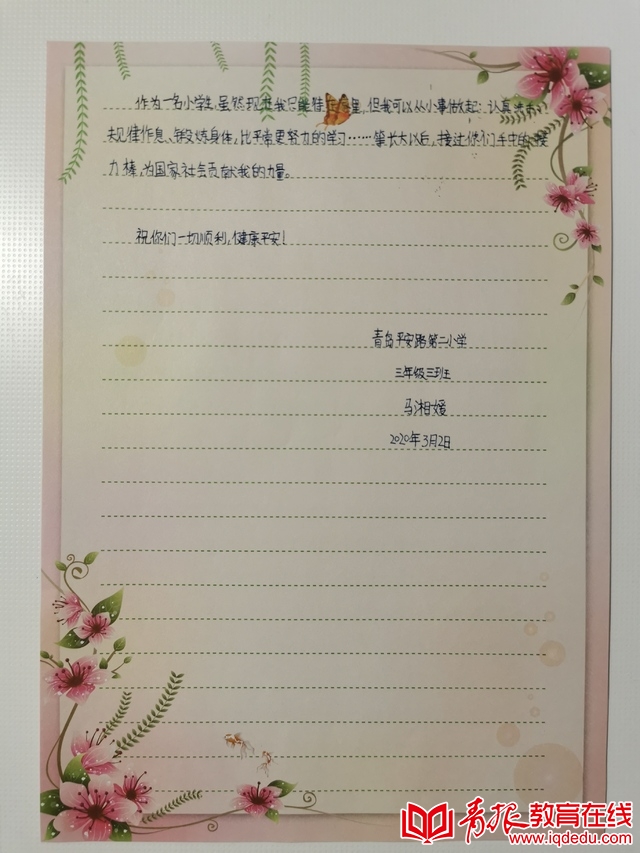 作为一名小学生,虽然现在我只能待在家里,但我可以从小事做起:认真
规律作息、锻炼身体,比平常更努力的学习……等长大以后,接过你们手中的接
力棒,为国家社会贡献我的力量。
祝你们一切顺利,健康平安!
青岛平安路第二小学
三年级三班
马湘媛
2020年3月2日
青报教育在线
www.iqdedu.com